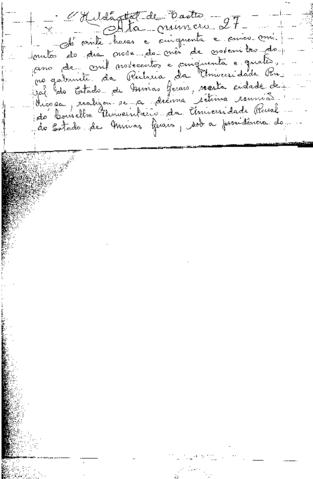 Hildo de Castro
Ata número 27
Às vinte horas e cinquenta e cinco mi-
nutos do dia nove do mês de novembro do
ano de mil novecentos e cinquenta e quatro,
no gabinete da Reitoria da Universidade Ru-
ral do Estado de Minas Gerais, nesta cidade de
Viçosa, realizou-se a décima sétima reunião
do Conselho Universitário da Universidade Rural
do Estado de Minas Gerais, sob a presidência do